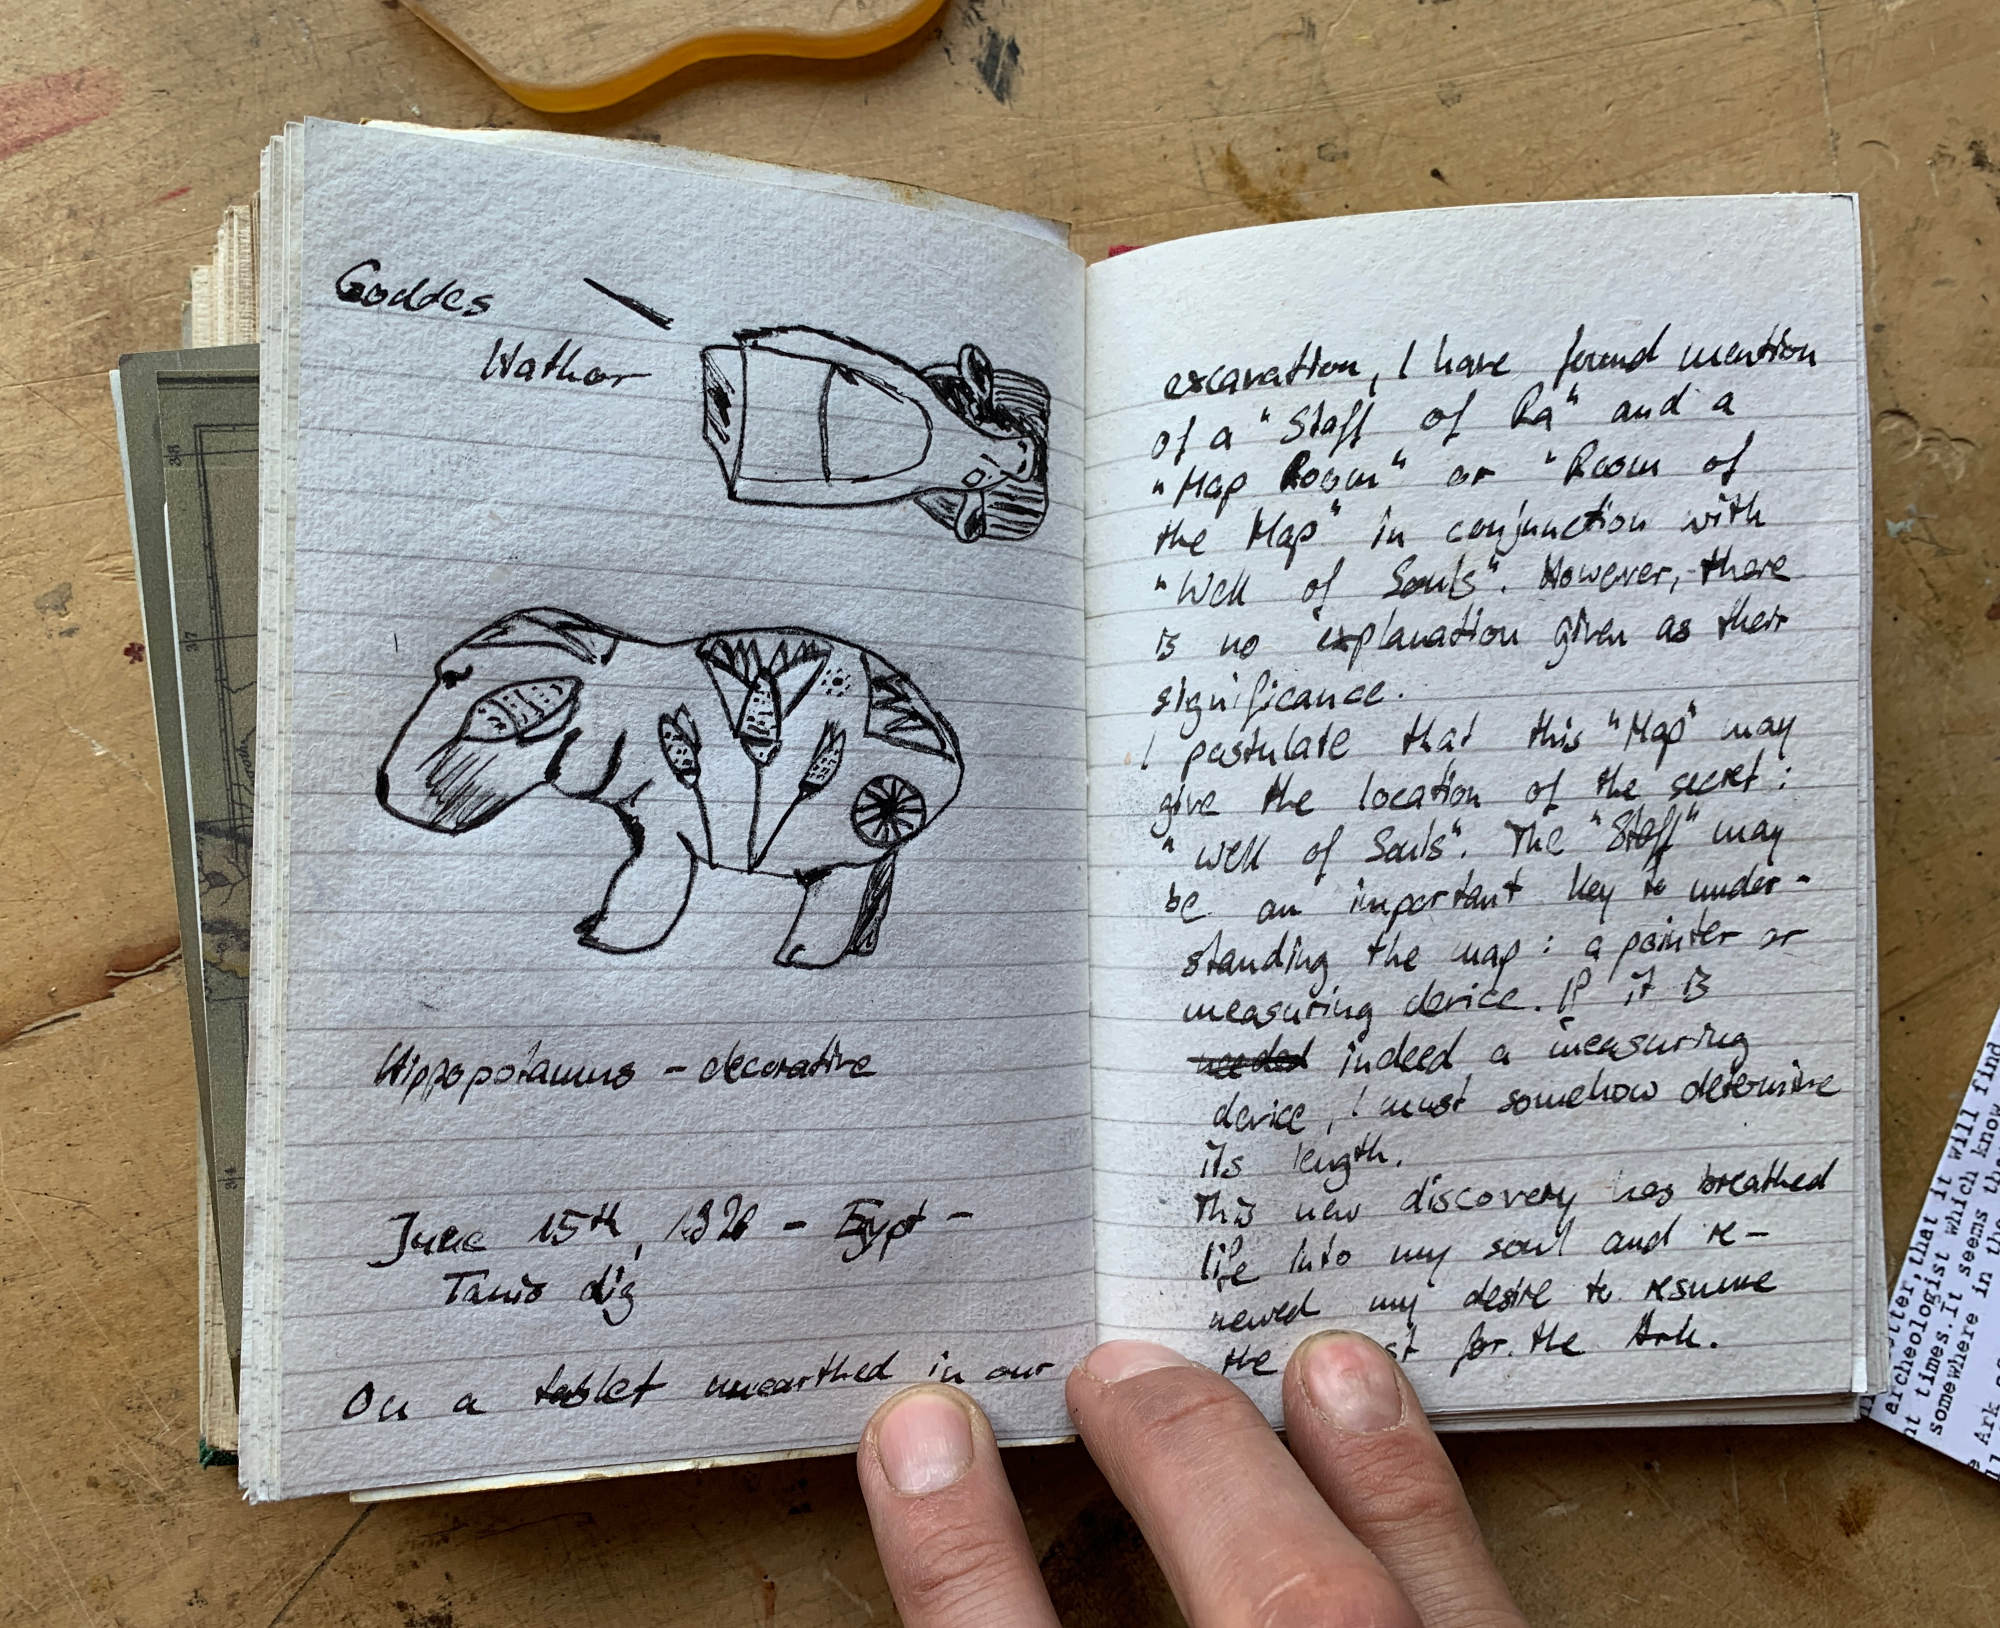 Goddes
Hathor
Hippopotamus - decorative
June 15th, 1920 - Egypt -
Tanis dig
On a tablet unearthed in our
excavation, I have found mention
of a "Staff of Ra" and a
"Map Room" or "Room of
the Map" in conjunction with
"Well of Souls". However, there
is no explanation given as their
significance.
I postulate that this "Map" may
give the location of the secret:
"Well of Souls". The "Staff" may
be an important key to under-
standing the map: a pointer or
measuring device. If it is
needed indeed a measuring
device, I must somehow determine
its length.
This new discovery has breathed
life into my soul and re-
newed my desire to resume
the st for the Ark.
38
37
that it will find
archeologist which
times. It seems know
somewhere in the
Ark